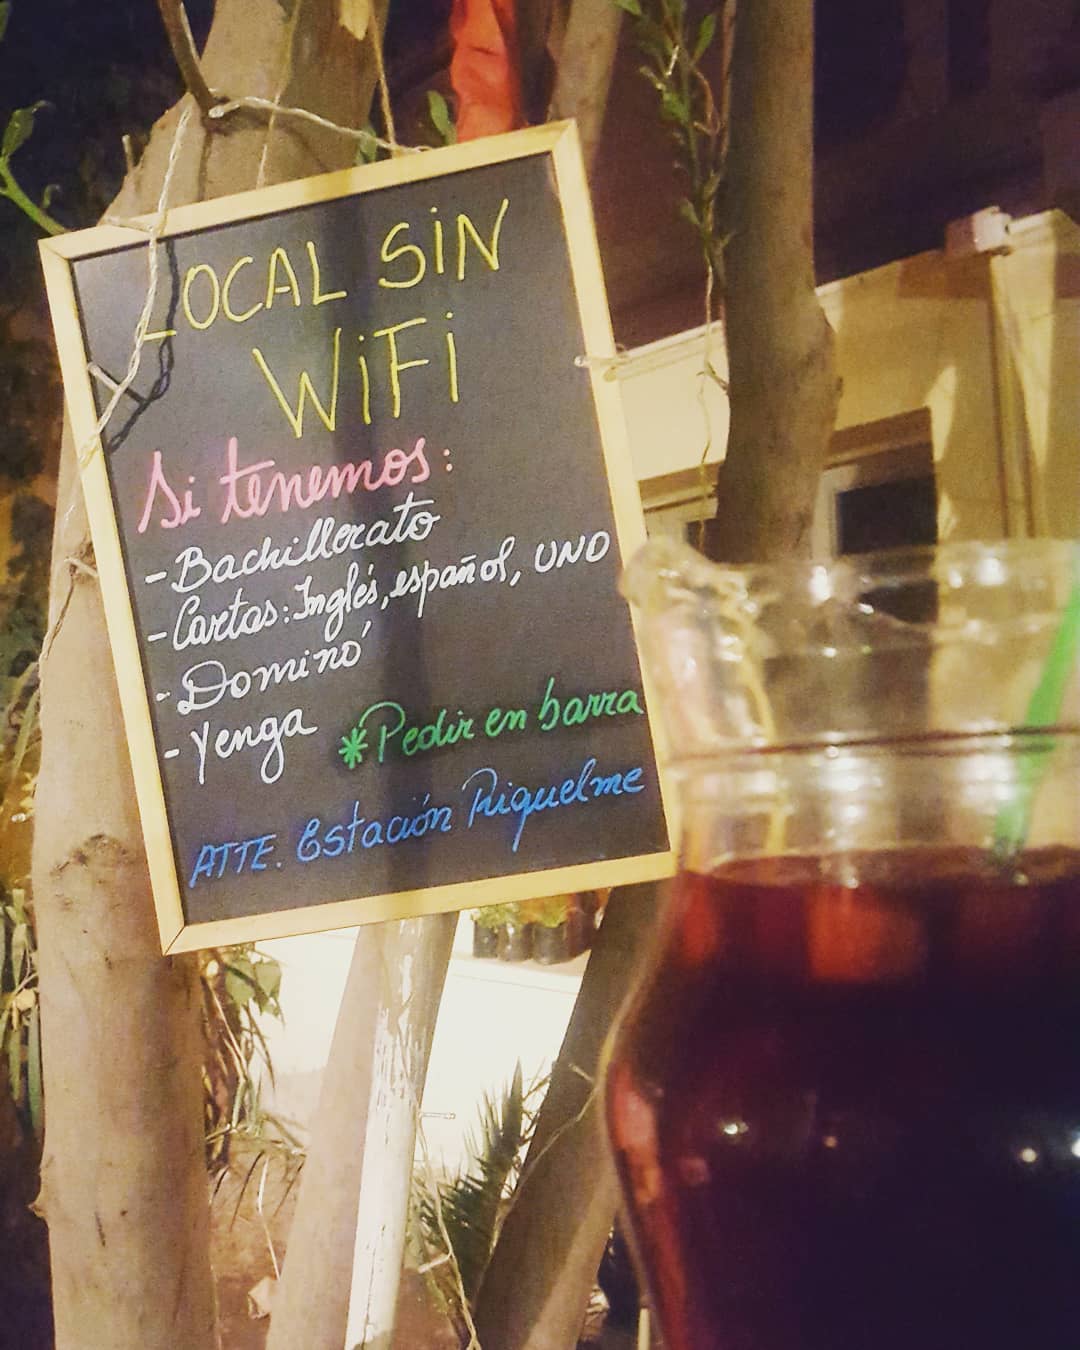 LOCAL SiN
WiFi
Si tenemos:
- Bachillerato
- Cartas: Inglés, español, UNO
- Dominó
- Yenga
* Pedir en barra
ATTE. Estación Riquelme